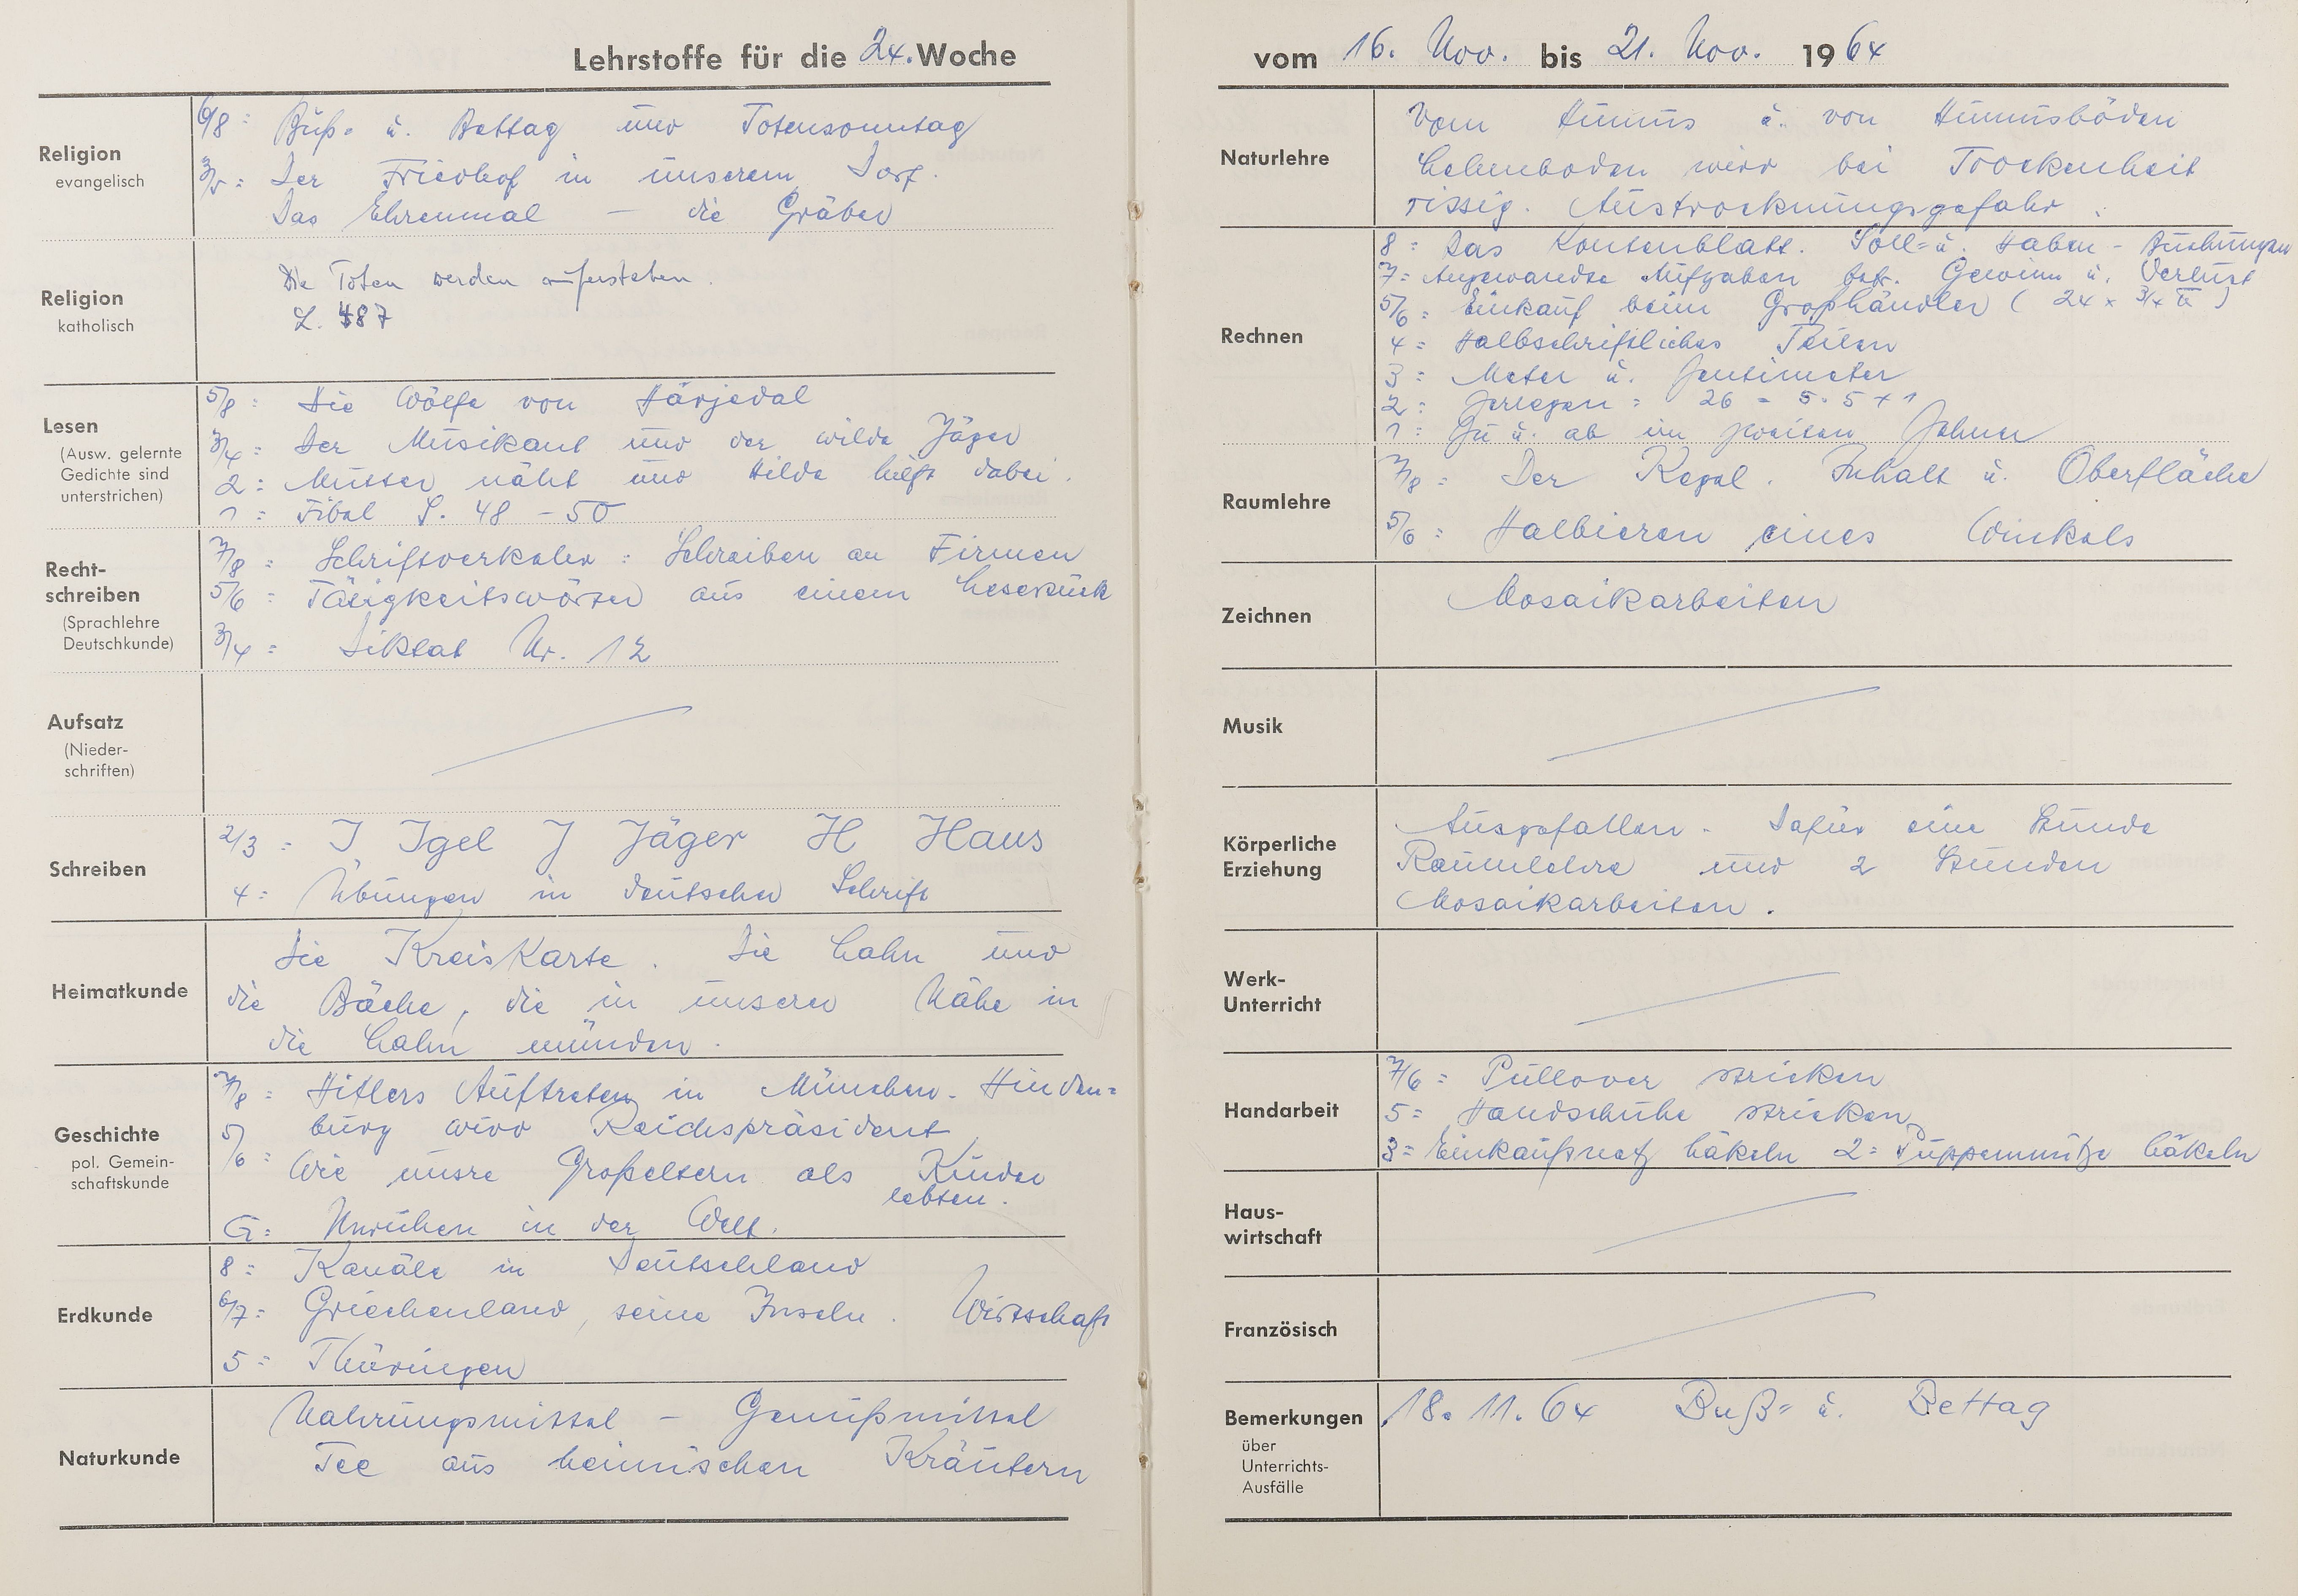 Lehrstoffe für die 24. Woche
Religion
evangelisch
6/8 = Buß- u. Bettag und Totensonntag
3/5 = Der Friedhof in unserem Dorf.
Das Ehrenmal – die Gräber
Religion
katholisch
Die Toten werden auferstehen.
L. 487
Lesen
(Ausw. gelernte
Gedichte sind
unterstrichen)
5/8 = Die Wölfe von Härjedal
3/4 = Der Musikant und der wilde Jäger
2 = Mutter näht und Hilde hilft dabei.
1 = Fibel S. 48 – 50
Recht-
schreiben
(Sprachlehre
Deutschkunde)
7/8 = Schriftverkehr = Schreiben an Firmen
5/6 = Tätigkeitswörter aus einem Lesestück
3/4 = Diktat Nr. 12
Aufsatz
(Nieder-
schriften)
Schreiben
2/3 = I Igel J Jäger H Haus
4 = Übungen in deutscher Schrift
Heimatkunde
Die Kreiskarte. Die Lahn und
die Bäche, die in unserer Nähe in
die Lahn münden.
Geschichte
pol. Gemein-
schaftskunde
7/8 = Hitlers Auftreten in München. Hinden=
burg wird Reichspräsident
5/6 = Wie unsre Großeltern als Kinder
lebten.
G = Unruhen in der Welt.
Erdkunde
8 = Kanäle in Deutschland
6/7 = Griechenland, seine Inseln. Wirtschaft
5 = Thüringen
Naturkunde
Nahrungsmittel – Genußmittel
Tee aus heimischen Kräutern
vom 16. Nov. bis 21. Nov. 1964
Naturlehre
Vom Humus u. von Humusböden
Lehmboden wird bei Trockenheit
rissig. Austrocknungsgefahr.
Rechnen
8 = Das Kontenblatt. Soll= u. Haben - Buchungen
7 = Angewandte Aufgaben betr. Gewinn u. Verlust
5/6 = Einkauf beim Großhändler (24 x 3/4
4 = Halbschriftliches Teilen
3 = Meter u. Zentimeter
2 = Zerlegen = 26 = 5 · 5 + 1
1 = Zu u. ab im zweiten Zehner
Raumlehre
7/8 = Der Kegel. Inhalt u. Oberfläche
5/6 = Halbieren eines Winkels
Zeichnen
Mosaikarbeiten
Musik
Körperliche
Erziehung
Ausgefallen. Dafür eine Stunde
Raumlehre und 2 Stunden
Mosaikarbeiten.
Werk-
Unterricht
Handarbeit
7/6 = Pullover stricken
5 = Handschuhe stricken
3 = Einkaufsnetz häkeln 2 = Puppenmütze häkeln
Haus-
wirtschaft
Französisch
Bemerkungen
über
Unterrichts-
Ausfälle
18. 11. 64 Buß= u. Bettag